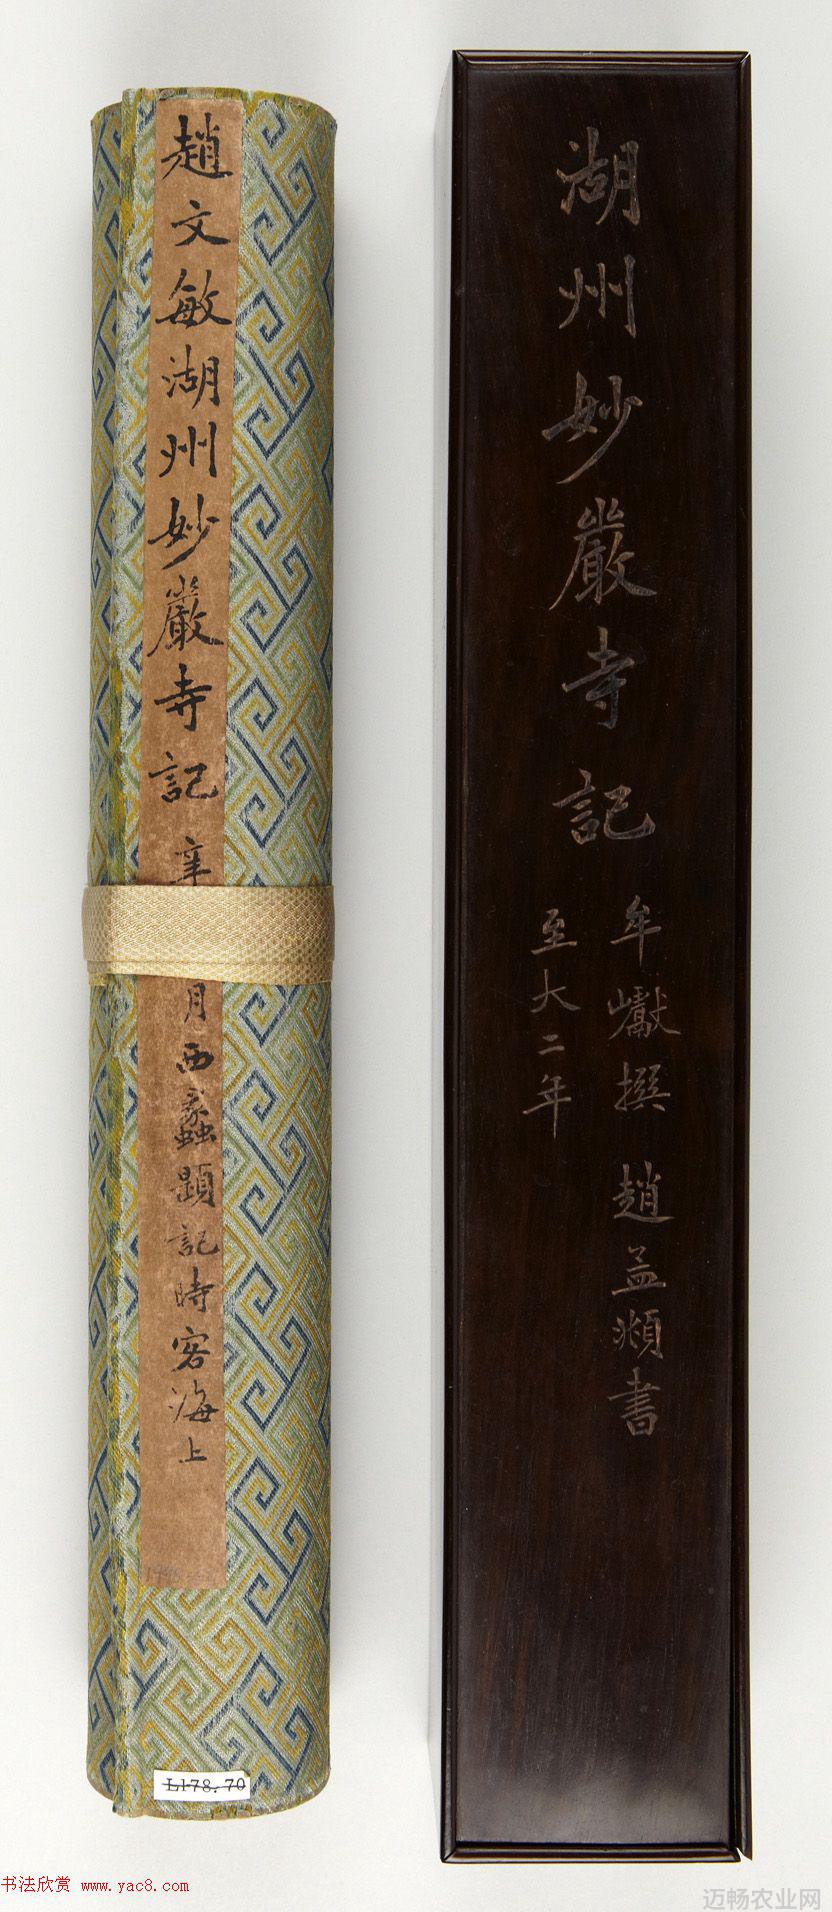 趙文敏湖州妙嚴寺記
辛
月西蠡題記時客海上
L178.70
湖州妙嚴寺記
牟巘撰 趙孟頫書
至大二年
书法欣赏 www.yac8.com
迈畅农业网